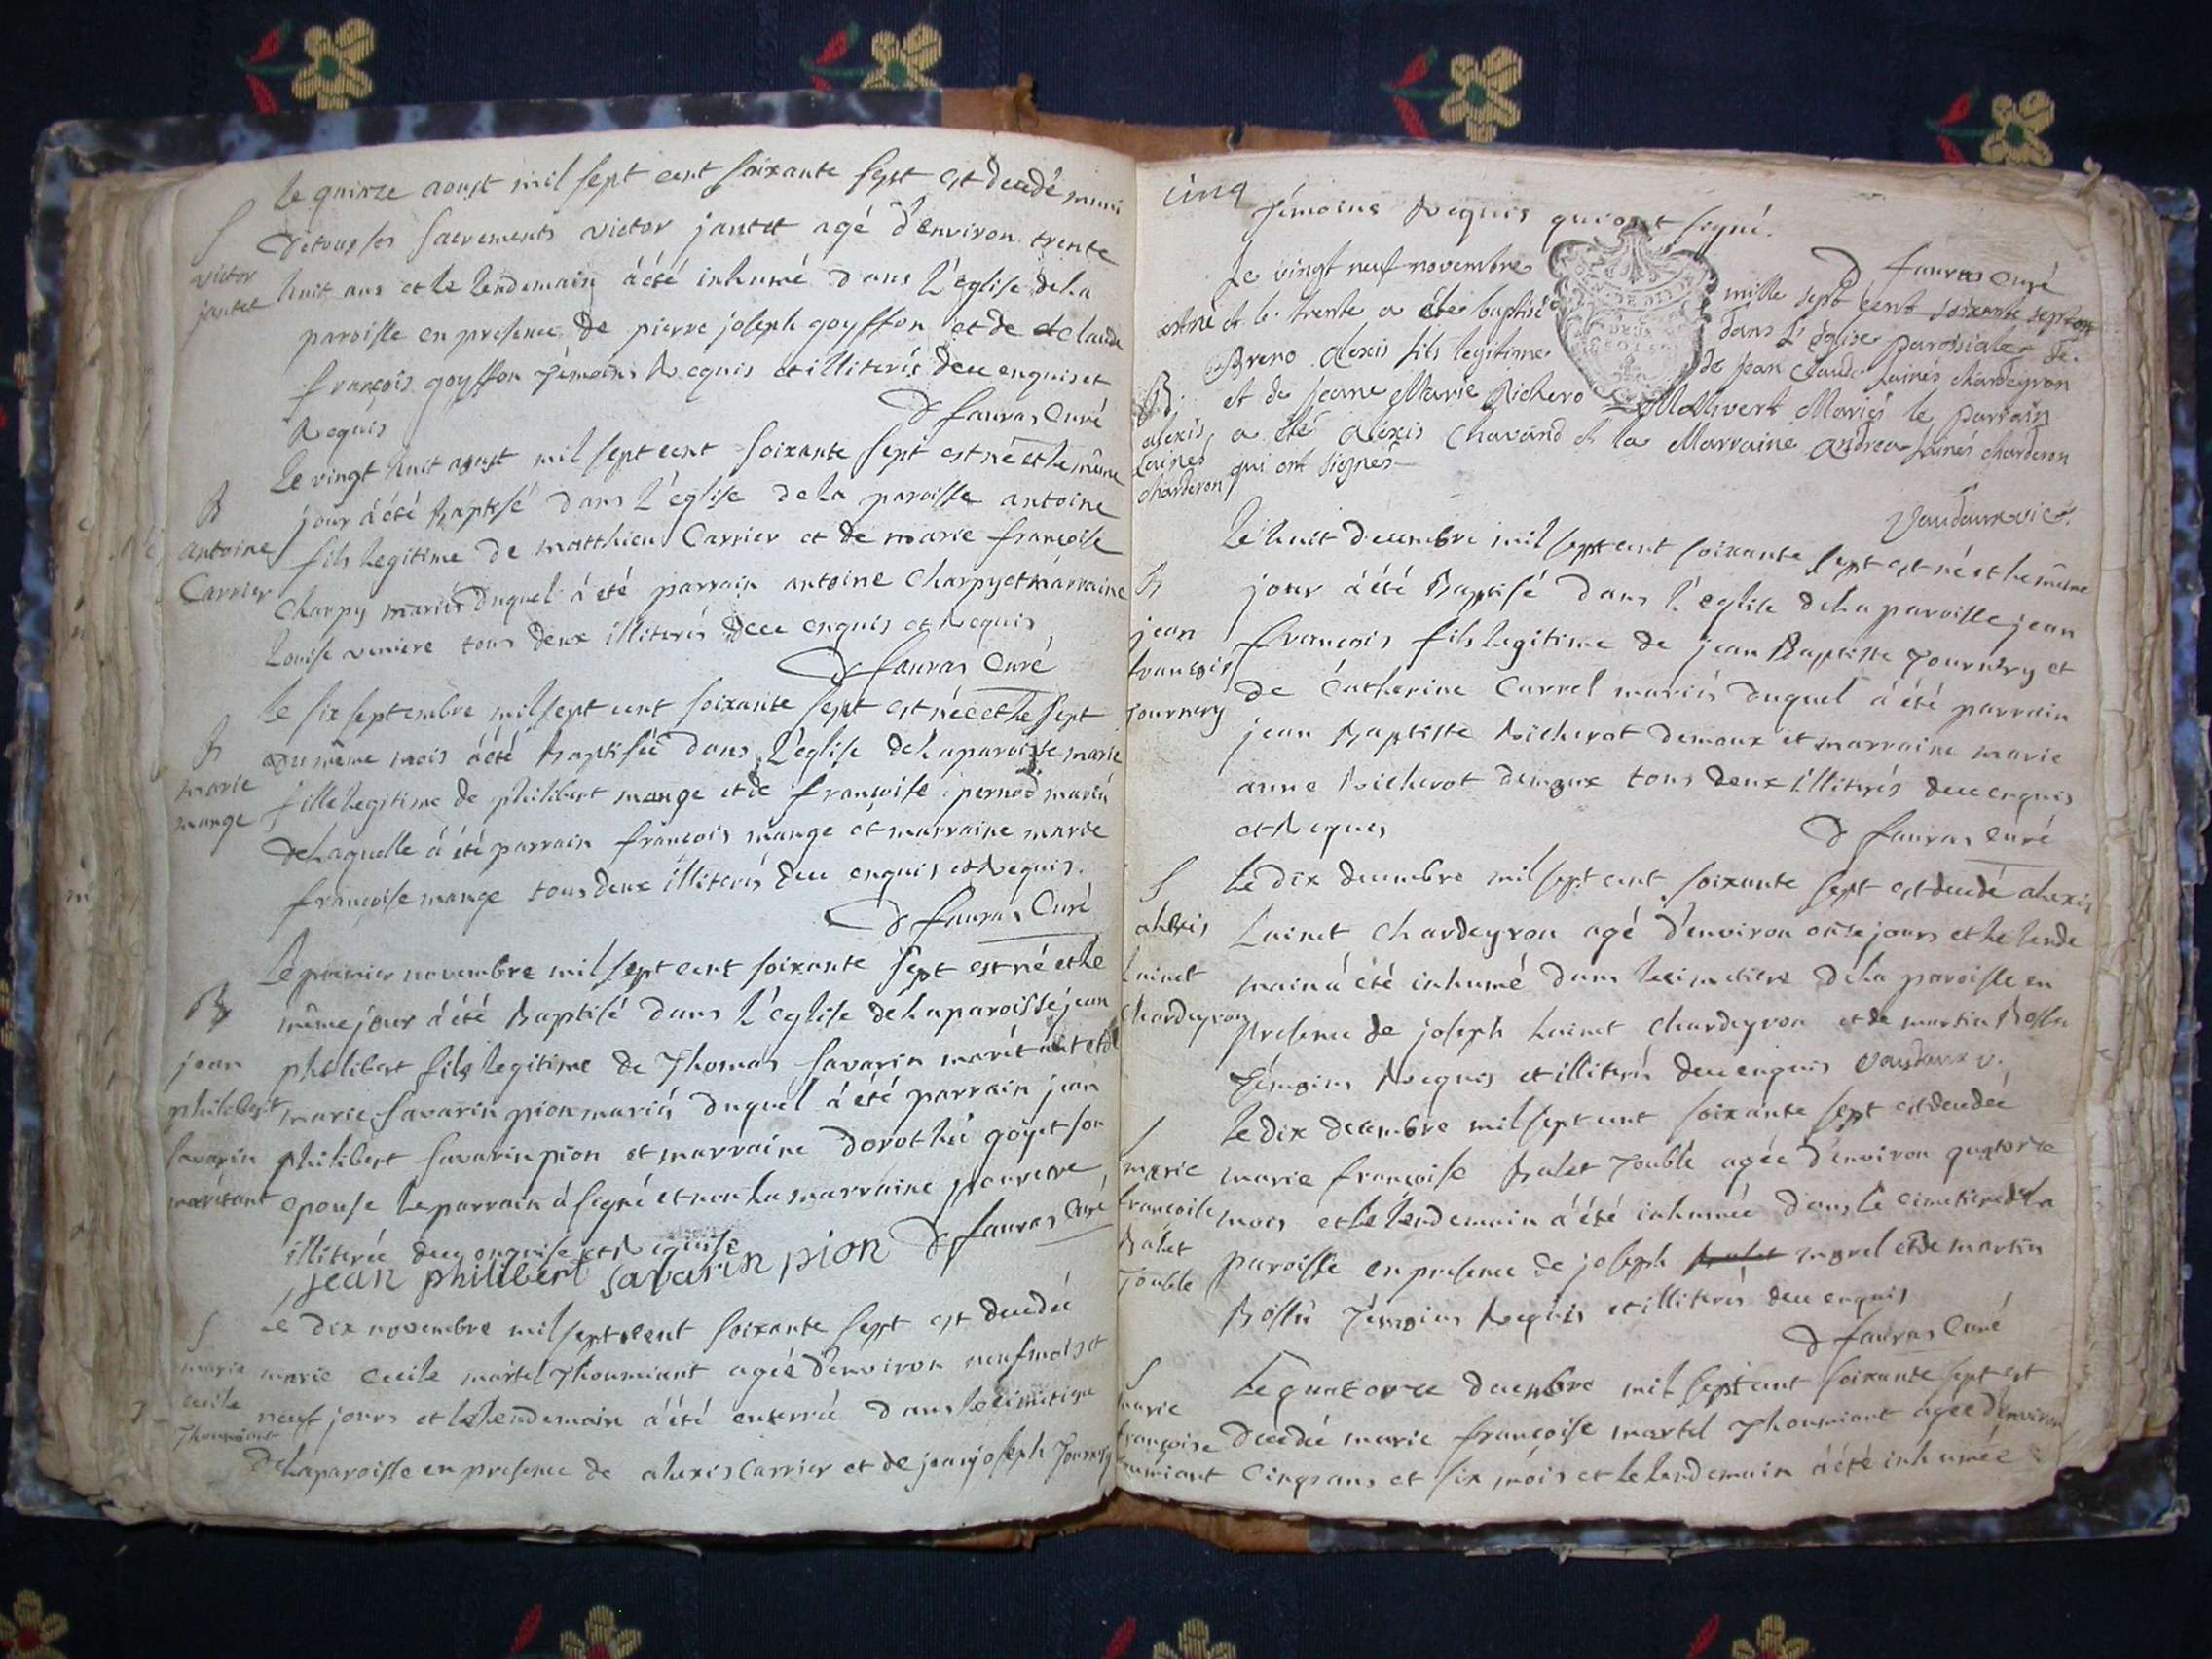 Le quinze aoust mil sept cent soixante sept est decedé muni
S de tous ses sacrements victor jantet agé d'environ trente
victor
jantet huit ans et le lendemain a été inhumé dans l'église de la
paroisse en presence de pierre joseph goyffon et de claude
françois goyffon témoins Requis et illiterés de ce enquis et
Requis D fauras Curé
Le vingt huit aoust mil sept cent soixante sept est né et le même
B jour a été Baptisé dans l'église de la paroisse antoine
antoine fils legitime de matthieu Carrier et de marie françoise
Carrier charpy mariés duquel a été parrain antoine charpy et marraine
Louise tous deux illiterés de ce enquis et Requis
D fauras Curé
Le six septembre mil sept cent soixante sept est née et le sept
B du même mois a été Baptisée dans l'église de la paroisse marie
marie fille legitime de philibert mange et de françoise pernod mariés
mange de laquelle a été parrain françois mange et marraine marie
françoise mange tous deux illiterés de ce enquis et Requis.
D fauras Curé
Le premier novembre mil sept cent soixante sept est né et le
B même jour a été Baptisé dans l'église de la paroisse jean
jean philibert fils legitime de Thomas Savarin marétant et de
philibert marie Savarin pion mariés duquel a été parrain jean
Savarin philibert Savarin pion et marraine dorothée goyet son
marétant epouse le parrain a signé et non la marraine pour etre
illiterée de ce enquise et Requise D fauras Curé
jean philibert savarin pion
Le dix novembre mil sept cent soixante sept est decedée
S
marie marie cecile martel Thoumiant agée d'environ neuf mois et
cecile neuf jours et le lendemain a été enterrée dans le cimetiere
Thoumiant
de la paroisse en presence de alexis Carrier et de jean joseph Journery
cinq
témoins Requis qui ont signé.
D fauras Curé
Le vingt neuf novembre mille sept cent soixante sept
est né et le trente a été baptisé dans l'église paroissiale de
Breno alexis fils legitime de jean claude Lainés chardeyron
B. et de jeanne Marie Richero Malivert Mariés le parrain
alexis a été alexis Chavand et la Marraine andrea Lainés charderon
Lainés qui ont signés
charderon
Vaudaux vic.
Le huit decembre mil sept cent soixante sept est né et le même
B jour a été Baptisé dans l'église de la paroisse jean
jean françois fils legitime de jean Baptiste Journery et
francois de Catherine Carrel mariés duquel a été parrain
journery jean Baptiste Richerot demoux et marraine marie
anne Richerot demoux tous deux illiterés de ce enquis
et Requis D fauras Curé
S Le dix decembre mil sept cent soixante sept est decedé alexis
alexis Lainet chardeyron agé d'environ onze jours et le lende
Lainet main a été inhumé dans le cimetiere de la paroisse en
chardeyron presence de joseph Lainet chardeyron et de martin Bossu
témoins Requis et illiterés de ce enquis Vaudaux v.
Le dix decembre mil sept cent soixante sept est decedée
S
marie marie françoise Balet Jouble agée d'environ quatorze
francoise mois et le lendemain a été inhumée dans le cimetiere de la
Balet paroisse en presence de joseph morel et de martin
Jouble
Bossu témoins Requis et illiterés de ce enquis
D fauras Curé
S Le quatorze decembre mil sept cent soixante sept est
marie
françoise decedée marie françoise martel Thoumiant agée d'environ
Thoumiant Cinq ans et six mois et le lendemain a été inhumée